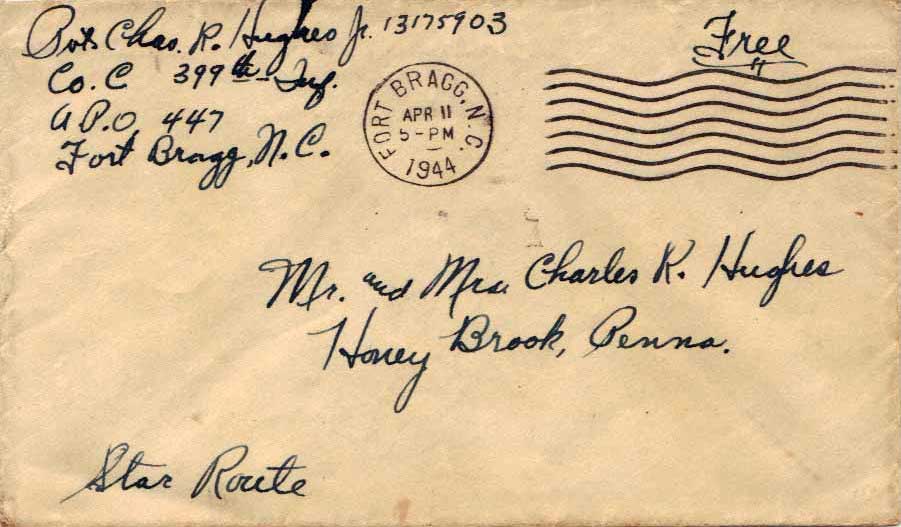 Pvt. Chas. R. Hughes Jr. 13175903
Co. C 399th Inf.
A.P.O. 447
Fort Bragg, N.C.
Free
FORT BRAGG, N.C.
APR 11
5-PM
1944
Mr. and Mrs. Charles R. Hughes
Honey Brook, Penna.
Star Route